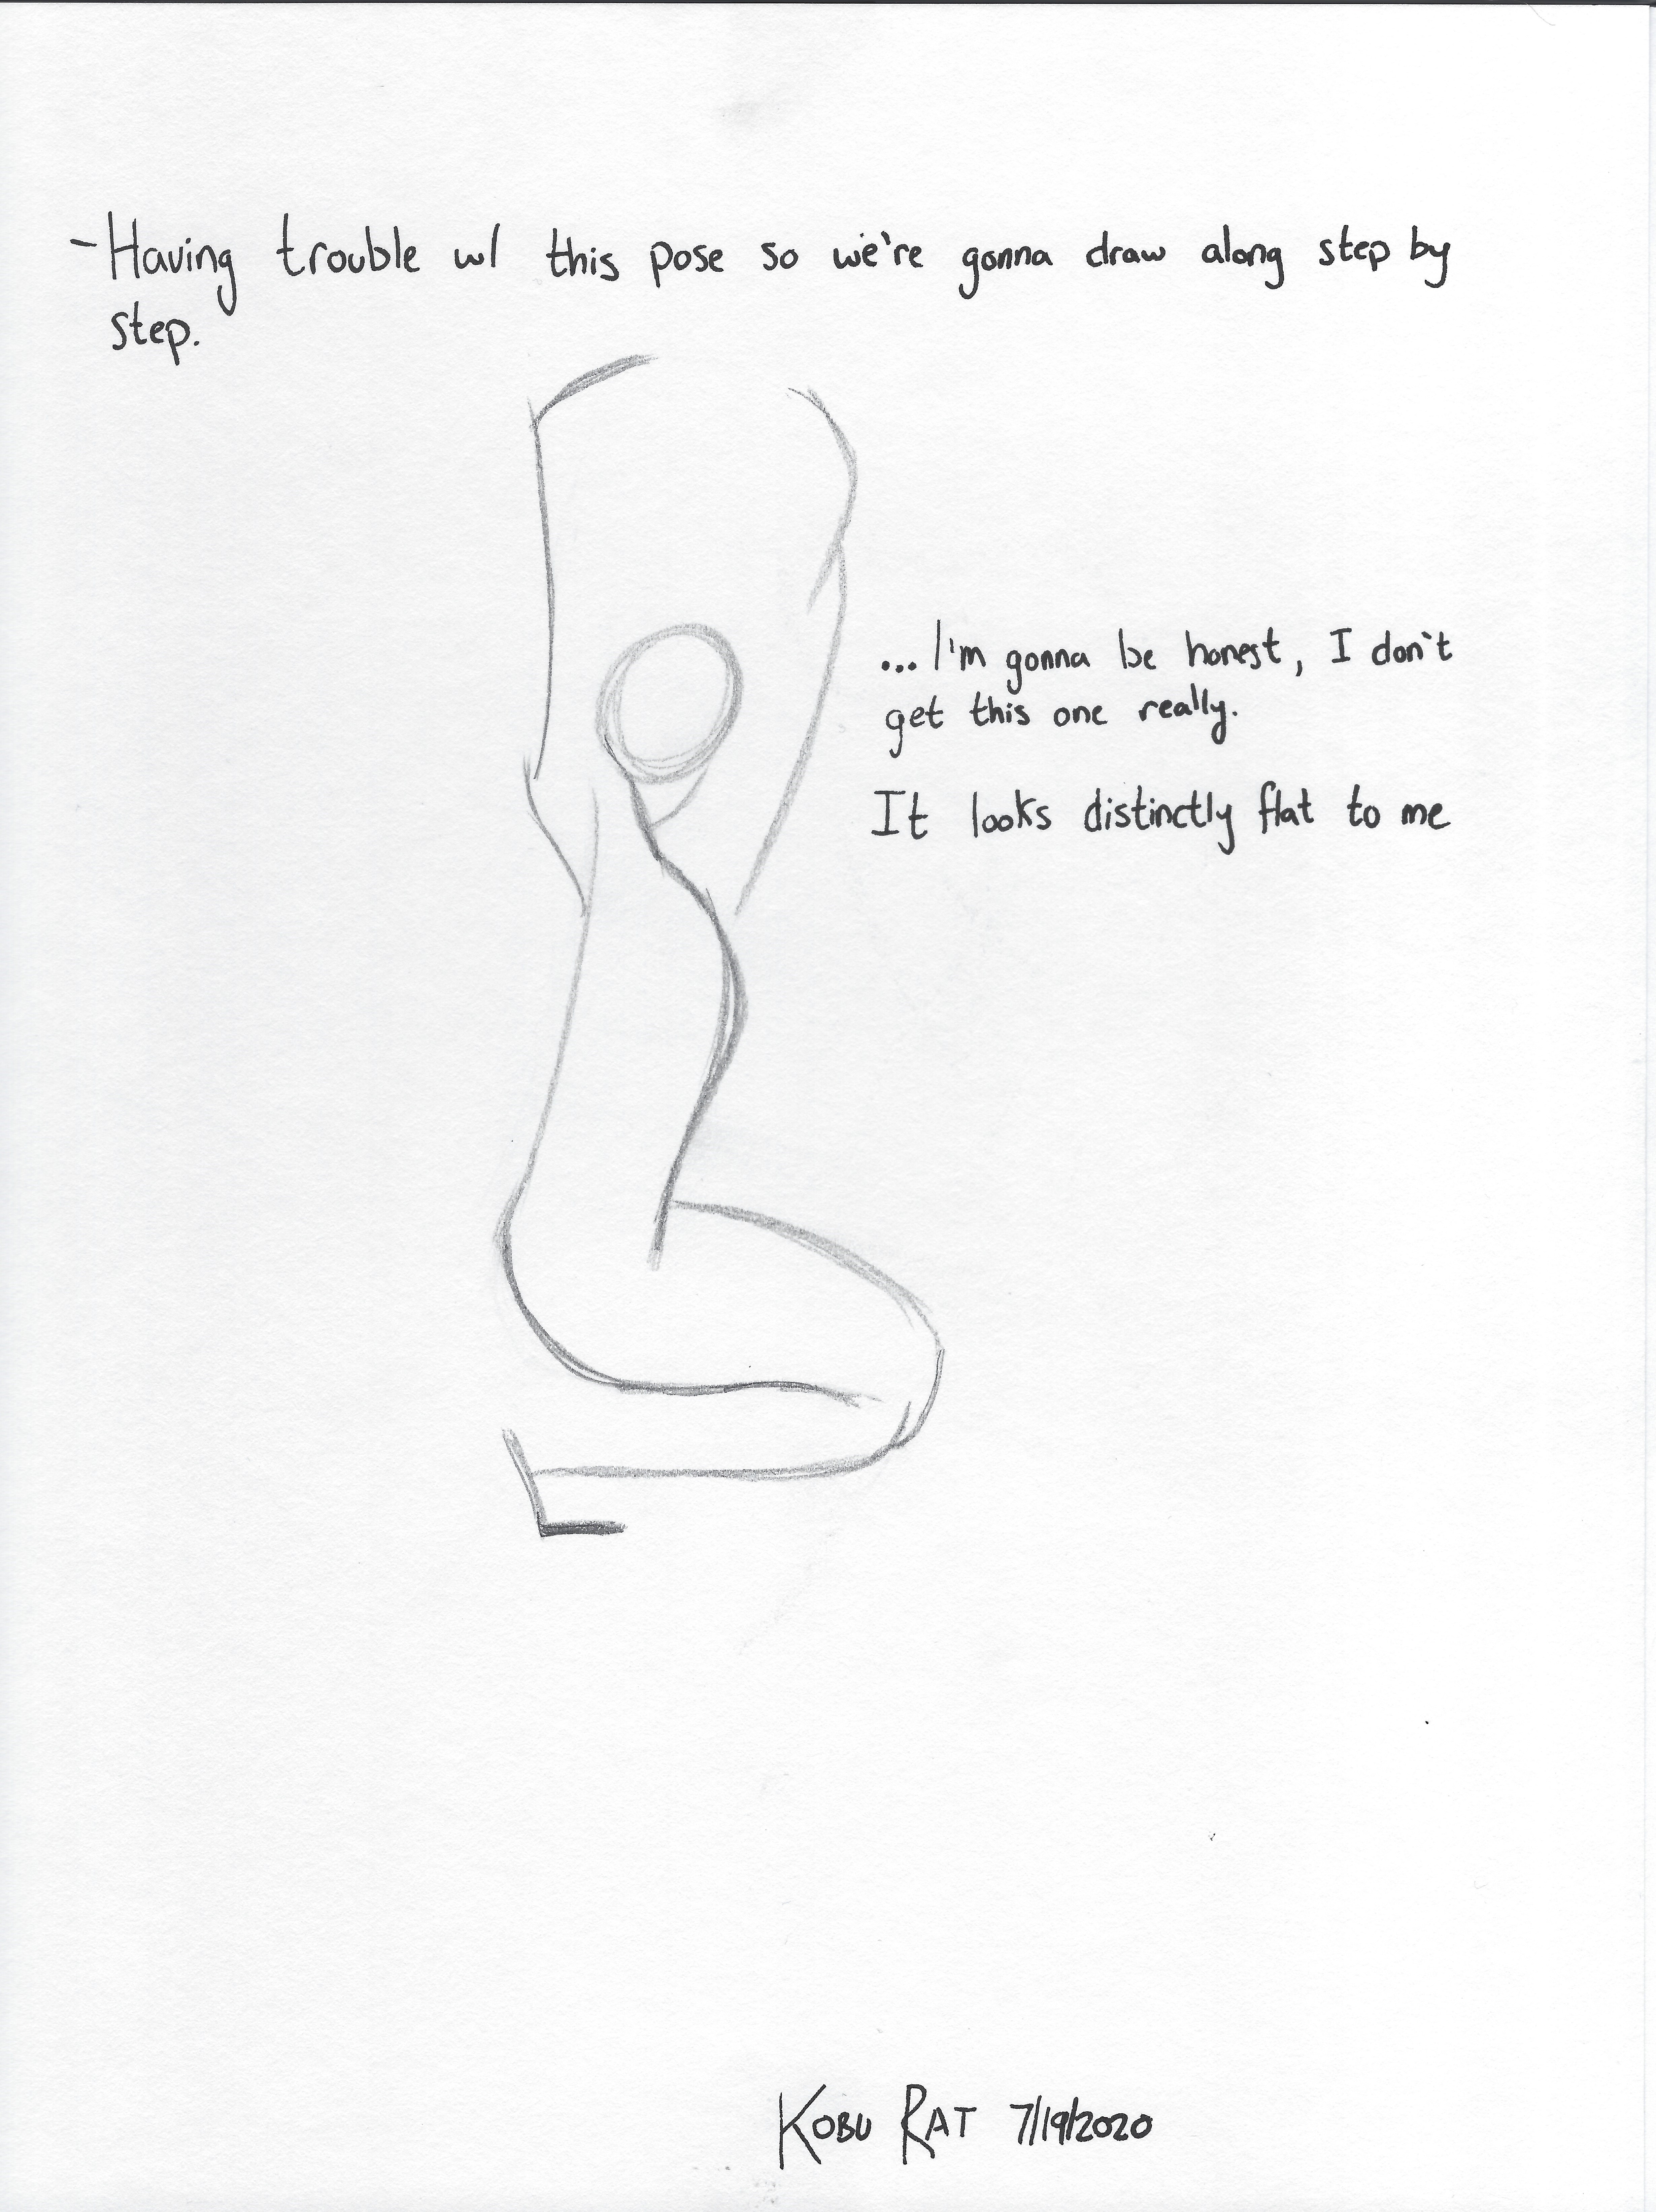 - Having trouble w/ this pose so we're gonna draw along step by
step.
... I'm gonna be honest, I don't
get this one really.
It looks distinctly flat to me
KOBU RAT 7/19/2020